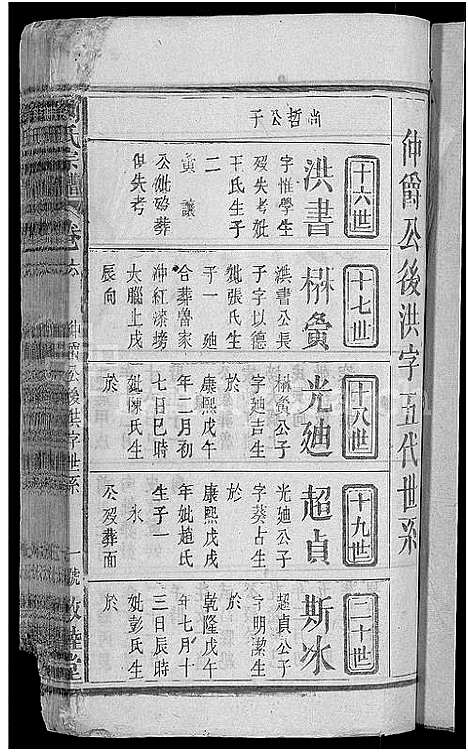 仲儒公後洪字五代世系
尚哲公子
十六世
洪書
字惟學生
歿失考妣
王氏生子
二
寅 讓
公妣歿葬
俱失考
十七世
洪書公長
子字以德
妣張氏生
子一 廸
合葬魯家
冲紅漆塝
大腦上戌
辰向
十八世
光廸
公子
字廸吉生
於
康熙戊午
年二月初
七日巳時
妣陳氏生
於
十九世
超貞
光廸公子
字葵占生
於
康熙戊戌
年妣趙氏
生子一
永
公歿葬面
二十世
斯冰
超貞公子
字明潔生
於
乾隆戊午
年七月十
三日辰時
妣彭氏生
於
氏宗譜
卷六
公後洪字世系
一號
敦睦堂